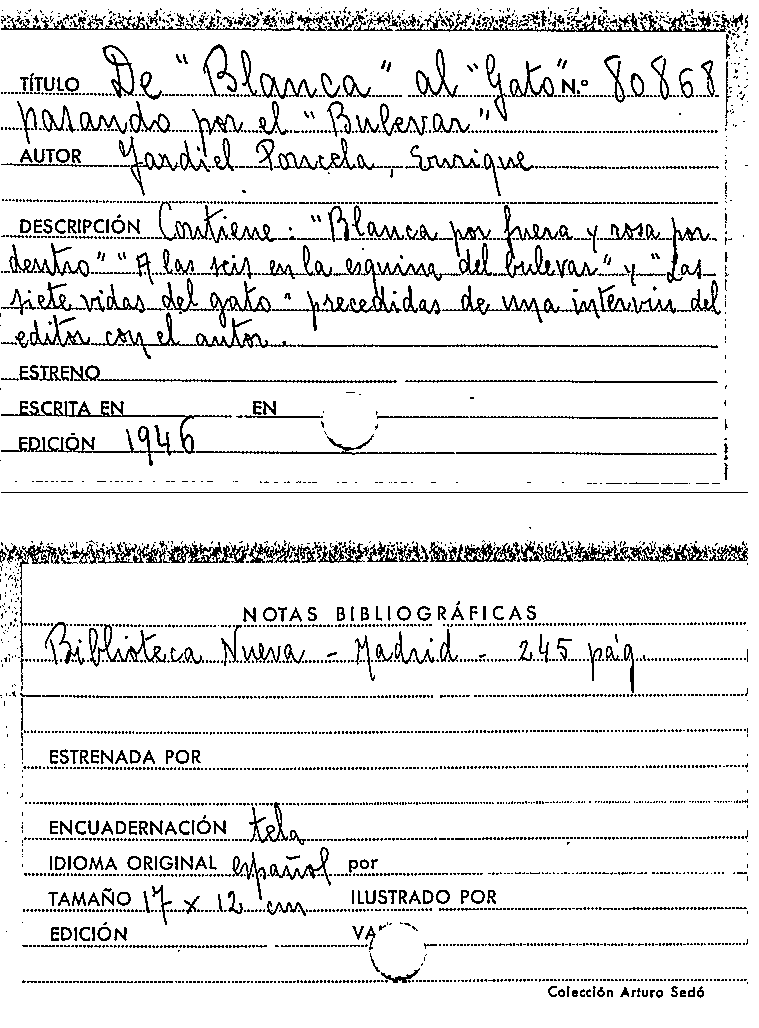 TÍTULO De "Blanca" al "Gato" N.º 80868
pasando por el "Bulevar"
AUTOR Jardiel Poncela, Enrique
DESCRIPCIÓN Contiene: "Blanca por fuera y rosa por
dentro" "A las seis en la esquina del bulevar" y "Las
siete vidas del gato" precedidas de una interviu del
editor con el autor.
ESTRENO
ESCRITA EN EN
EDICIÓN 1946
NOTAS BIBLIOGRÁFICAS
Biblioteca Nueva - Madrid - 245 pág.
ESTRENADA POR
ENCUADERNACIÓN tela
IDIOMA ORIGINAL español por
TAMAÑO 17 x 12 cm ILUSTRADO POR
EDICIÓN
Colección Arturo Sedó